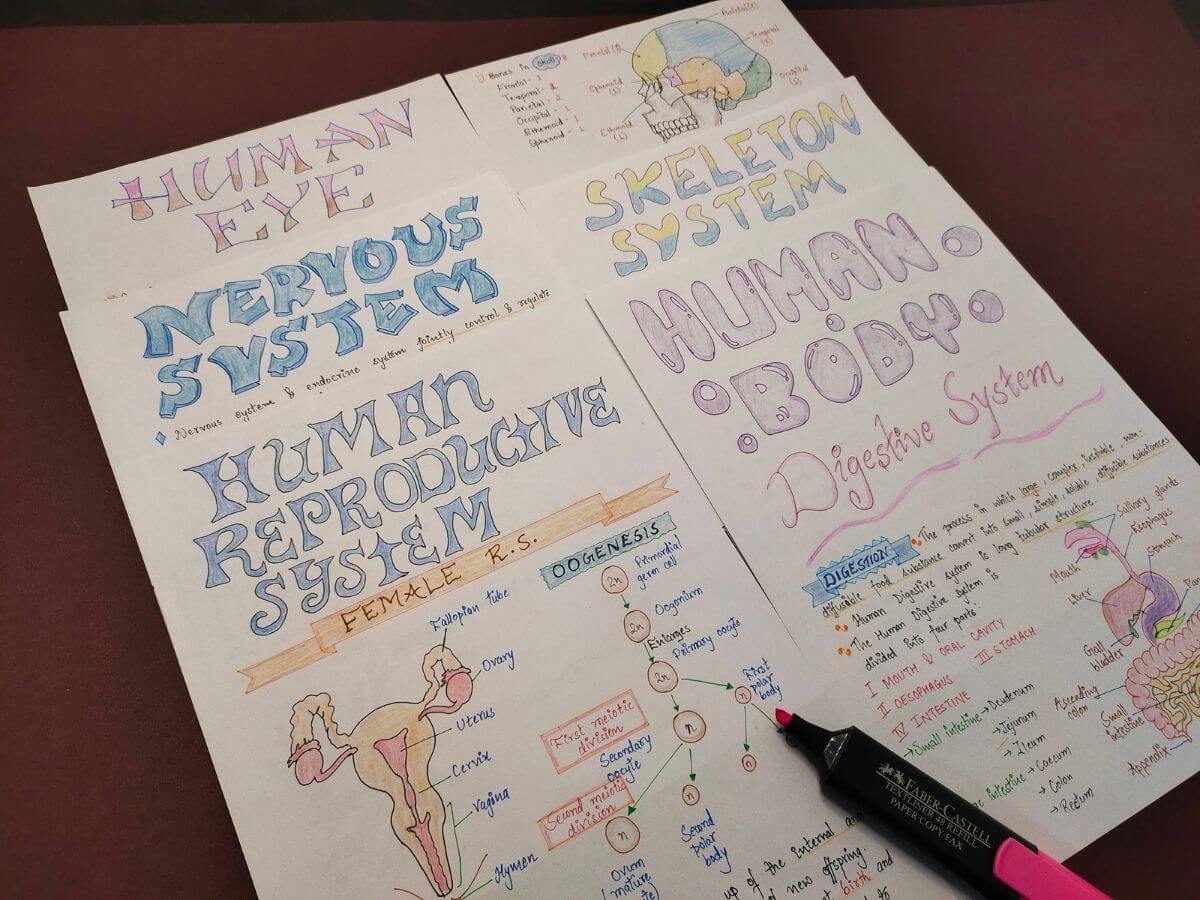 Bones in skull 8
Frontal - 1
Temporal - 2
Parietal - 2
Occipital - 1
Ethemoid - 1
Sphenoid - 1
Frontal (1)
Sphenoid (1)
Ethmoid (1)
Parietal (2)
Temporal (2)
Occipital (1)
HUMAN
EYE
SKELETON
SYSTEM
NERVOUS
SYSTEM
Nervous system & endocrine system jointly control & regulate
HUMAN
BODY
Digestive System
DIGESTION
The process in which large, complex, insoluble, non-
diffusible food substance convert into small, simple, soluble, diffusible substances
Human Digestive system is long tubular structure.
The Human Digestive system is
divided into four parts:
I MOUTH & ORAL CAVITY
II OESOPHAGUS
III STOMACH
IV INTESTINE
→ Small intestine → Deudenum
→ Jejunum
→ Ileum
intestine → Caecum
→ Colon
→ Rectum
Salivary glands
Esophagus
Stomach
Mouth
Liver
Gall
bladder
Ascending
colon
Small
intestine
Appendix
HUMAN
REPRODUCTIVE
SYSTEM
FEMALE R.S.
Fallopian tube
Ovary
Uterus
Cervix
Vagina
Hymen
OOGENESIS
2n
Primordial
germ cell
2n
Oogonium
Enlarges
2n
Primary oocyte
n
First
polar
body
First meiotic
division
n
Secondary
oocyte
n
Second meiotic
division
n
n
Second
polar
body
Ovum
(mature
up of the internal and
d new offspring.
birth and
to
FABER-CASTELL
TEXTLINER 48 REFILL
PAPER COPY FAX